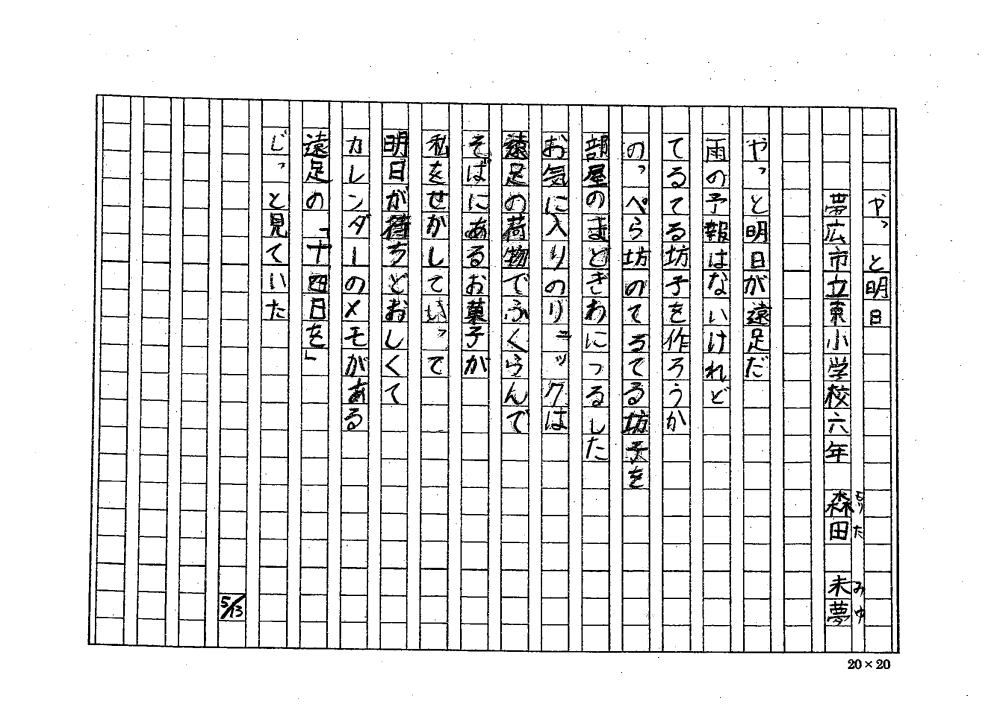 やっと明日
帯広市立東小学校六年 森田 未夢
もりた みゆ
やっと明日が遠足だ
雨の予報はないけれど
てるてる坊子を作ろうか
のっぺら坊のてるてる坊子を
部屋のまどぎわにつるした
お気に入りのリュックは
遠足の荷物でふくらんで
そばにあるお菓子が
私をせかして待って
明日が待ちどおしくて
カレンダーのメモがある
遠足の「十四日を」
じっと見ていた
5/13
20×20